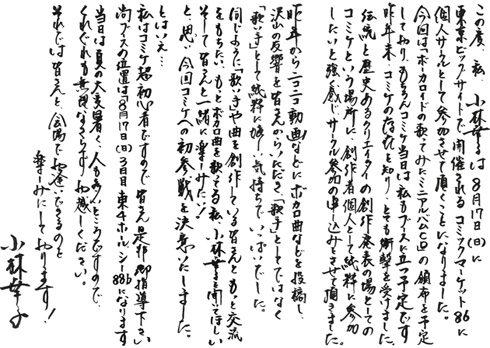 この度、私 小林幸子は8月17日(日)に
東京ビッグサイトで開催されるコミックマーケット86に
個人サークルとして参加させて頂くことになりました。
今回は「ボカロイドの歌ってみたミニアルバムCD」の頒布を予定
しており、もちろんコミケ当日は私もブースに立つ予定です
昨年末、コミケの存在を知り、とても衝撃を受けました。
伝統と歴史あるクリエイターの創作発表の場としての
コミケという場所に、創作者個人として純粋に参加
したいと強く感じサークル参加の申し込みをさせて頂きました。
昨年からニコニコ動画などにボカロ曲などを投稿し、
沢山の反響を皆さんからいただき、「歌手」としてではなく
「歌い手」として純粋に嬉しい気持ちでいっぱいでした。
同じように「歌」や曲を創作している皆さんともっと交流
をもちたい、もっとボカロ曲を歌ってる私、小林幸子を聞いてほしい
そして皆さんと一緒に楽しみたい!
と思い、今回コミケへの初参戦を決意いたしました。
とはいえ…
私はコミケ超初心者ですので皆さん是非御指導下さい
尚ブースの位置は「8月17日(日)3日目東4ホルシ-88b」になります
当日は真夏の大変暑く、人も多いところですので、
くれぐれも無理なさらずお越しください。
それでは皆さんと、会場でお会いできるのを
楽しみにしております!
小林幸子